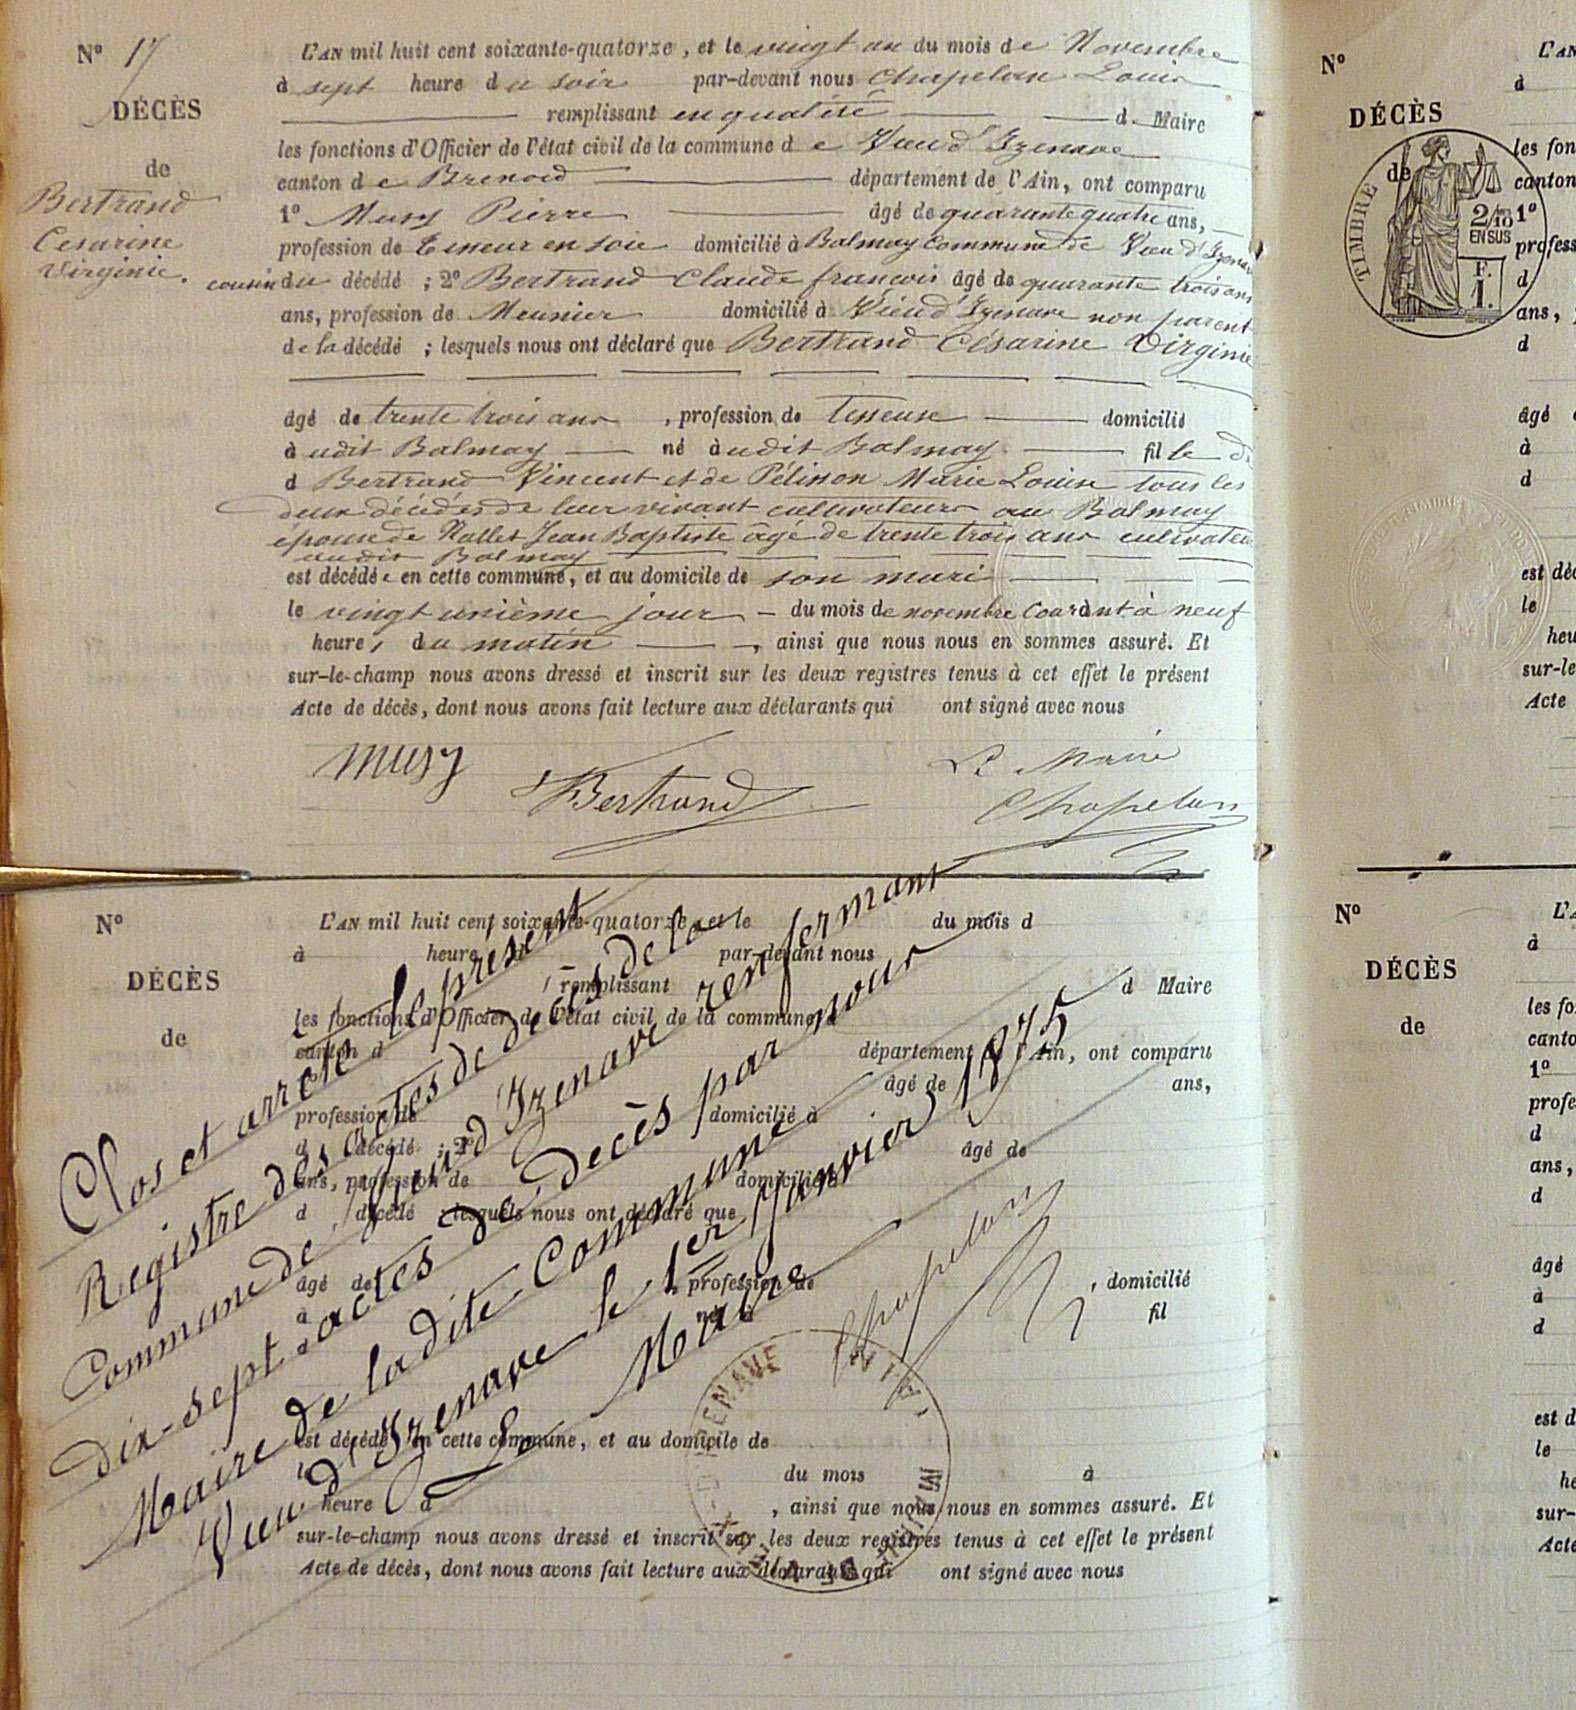 N° 17
DÉCÈS
de
Bertrand
Cesarine
Virginie.
L'AN mil huit cent soixante-quatorze, et le vingt un du mois de Novembre
à sept heure du soir par-devant nous Chapelan Louis
remplissant en qualité d Maire
les fonctions d'Officier de l'état civil de la commune de Vieu d'Izenave
canton de Brenod département de l'Ain, ont comparu
1° Musy Pierre âgé de quarante quatre ans,
profession de domicilié à Balmay Commune de Vieu d'Izenave
cousin du décédé ; 2° Bertrand Claude francois âgé de quarante trois ans
ans, profession de Meunier domicilié à Vieu d'Izenave non parent
de la décédé ; lesquels nous ont déclaré que Bertrand Césarine Virginie
âgé de trente trois ans , profession de Tisseuse domicilié
à udit Balmay né à udit Balmay fille de
d Bertrand Vincent et de Pélisson Marie Louise tous les
deux décédés de leur vivant cultivateurs au Balmay
épouse de Nallet Jean Baptiste âgé de trente trois ans cultivateur
audit Balmay
est décédée en cette commune, et au domicile de son mari
le vingt unième jour du mois de novembre courant à neuf
heure, du matin , ainsi que nous nous en sommes assuré. Et
sur-le-champ nous avons dressé et inscrit sur les deux registres tenus à cet effet le présent
Acte de décès, dont nous avons fait lecture aux déclarants qui ont signé avec nous
Musy
Bertrand
Le Maire
Chapelan
N°
DÉCÈS
de
L'AN mil huit cent soixante-quatorze, et le du mois d
à heure d par-devant nous
remplissant d Maire
les fonctions d'Officier de l'état civil de la commune d
canton d département de l'Ain, ont comparu
âgé de ans,
profession de domicilié à
d décédé ; 2° âgé de
ans, profession de domicilié à
d décédé ; lesquels nous ont déclaré que
âgé de , profession de , domicilié
à né à fil
d
est décédé en cette commune, et au domicile de
du mois à
heure d , ainsi que nous nous en sommes assuré. Et
sur-le-champ nous avons dressé et inscrit sur les deux registres tenus à cet effet le présent
Acte de décès, dont nous avons fait lecture aux déclarants qui ont signé avec nous
Clos et arrêté le présent
Registre des actes de décès de la
Commune de Vieu d'Izenave renfermant
Dix-sept actes de Décès par nous
Maire de la dite Commune
Vieu d'Izenave le 1er Janvier 1875
Le Maire
Chapelan
N°
DÉCÈS
de
TIMBRE
2/10
EN SUS
F.
1.
L'AN
à
les fon
canton
1°
profess
d
ans,
d
âgé
à
d
est déc
le
heu
sur-le
Acte
N°
DÉCÈS
de
L'A
à
les fo
canto
1°
profe
d
ans,
d
âgé
à
d
est d
le
he
sur-
Acte